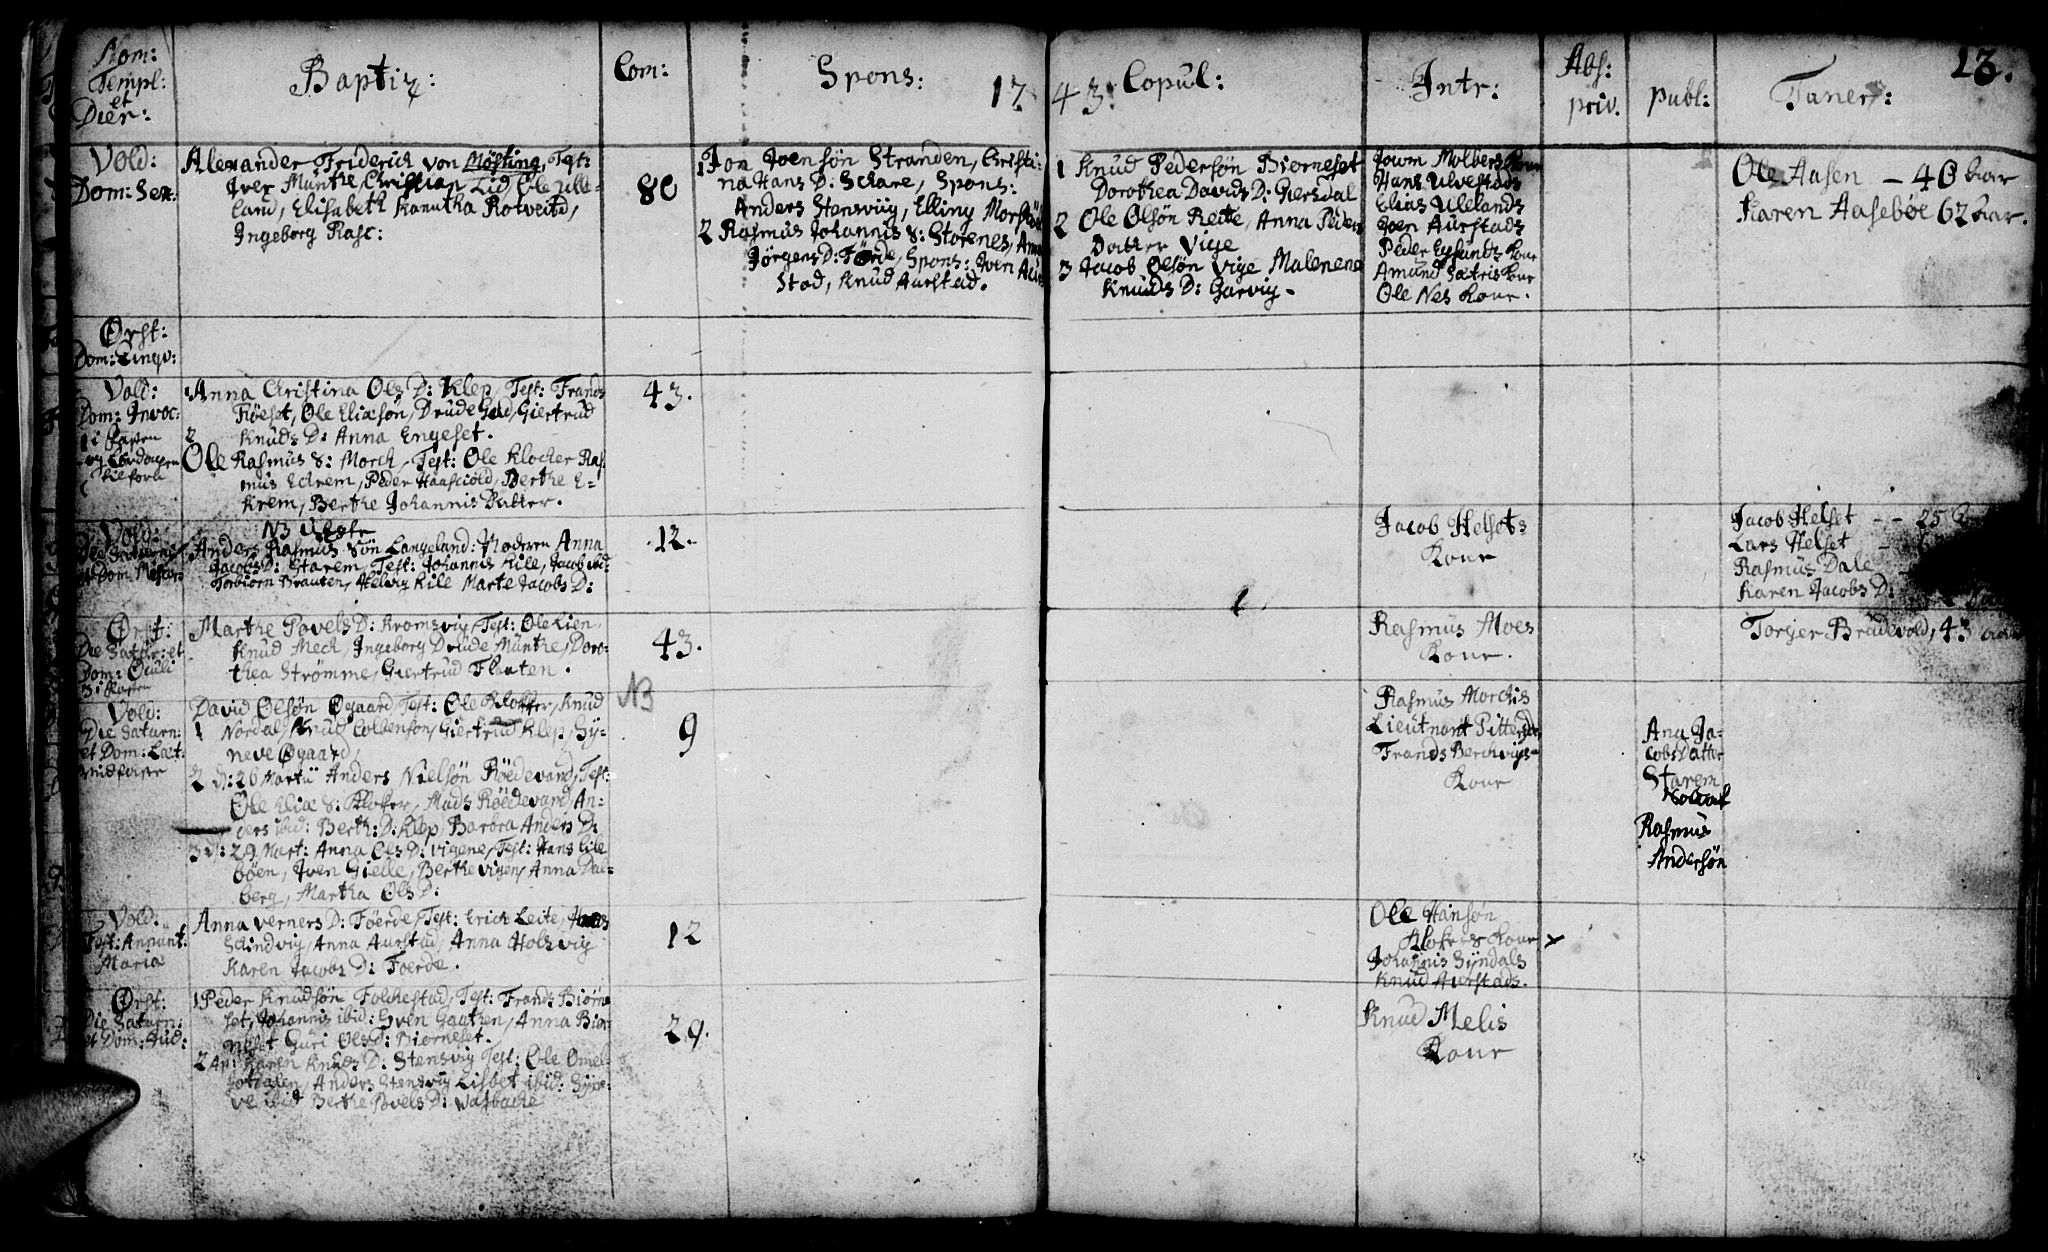 Nom:
Templ:
et
Dier:
Baptiz:
Com:
Spons:
17
43:
Copul:
Intr:
Abs:
priv.
publ:
Funer:
13.
Vold:
Dom: Sex:
Alexander Friderich von Møsting, Test:
Iver Munthe, Christian Lid, Ole Ulle-
land, Elisabeth Kanutha Rotveitd,
Ingeborg Rasc:
80
1 Jon Joensøn Stranden, Christi-
na Hans D: Schare, Spons:
Anders Stensviig, Elling Morstøl
2 Rasmus Johannis S: Storenes, Anna
Jørgens D: Førde, Spons: Iven Aur-
stad, Knud Aurstad.
1 Knud Pedersøn Biorneset
Dorothea Davids D: Giersdal
2 Ole Olsøn Reite, Anna Peders
Datter Vige
3 Jacob Olsøn Vige Malenene
Knuds D: Garvig-
Jovm Molbers Kone
Hans Ulvestads
Elias Ullelands
Joen Aurstads
Peder Egsunds Kone
Amund Sætris Kone
Ole Nes Kone.
Ole Aasen - 40 Aar
Karen Aasebøe 62 Aar.
Ørst:
Dom: Qinqv:
Vold:
Dom: Invoc:
1 i Fasten
Anna Christina Ols D: Klep, Test: Frands
Røeset, Ole Eliæsøn, Drude Gad, Giertrud
Knuds D: Anna Engeset.
2
Ole Rasmus S: Morch, Test: Ole Klocher Ras
mus Echrem, Peder Haaschiold, Berthe E-
krem, Berthe Johannis Datter.
43.
Vold:
et Dom:
NB Uægte
Anders Rasmus søn Langeland: Moderen Anna
Jacobs D: Starem, Test: Johannis Kile, Jacob ibid:
Torbiørn Brauten, Helvig Kile Marte Jacobs D:
.12.
Jacob Helsets
Kone
Jacob Helset - - 25
Lars Helset -
Rasmus Dale
Karen Jacobs D:
Ørst:
Die Satur: et
Dom: Oculi
3 i Fasten
Marthe Povels D: Kromsvig, Test: Ole Lien,
Knud Mech, Ingeborg Drude Munthe, Doro-
thea Strømme, Giertrud Flaaten.
43.
Rasmus Moes
Kone.
Torger Brudevold, 43 aar
Vold:
Die Saturn:
et Dom: Læt:
midfaste
David Olsøn Øgaard, Test: Ole Klokker, Knud
1 Nordal, Knud Collenson, Giertrud Klep, Sy-
neve Øgaard,
2 d: 26 Martii Anders Nielsøn Røedevand, Test:
Ole Eliæ S: Kloker, Mads Røedevand, An-
ders ibid: Berth: D: Klep, Barbra Anders D:
3 d: 29 Mart: Anna Ols D: Vigene, Test: Hans Lile
bøen, Iven Gielle, Berthe Vigen, Anna Dal-
berg, Martha Ols D:
NB
9
Rasmus Morchis
Lieutnant Pitters
Frands Berchvigs-
Kone
Ana Ja-
cobsDatter
Starem
Rasmus
Andersøn
Vold:
Fest: Annunt:
Mariæ
Anna Verners D: Føerde, Test: Erich Leite,
Schindvig, Anna Aurstad, Anna Holsvig
Karen Jacobs D: Foerde.
12
Ole Hansøn
Klokers Kone
Johannis Syndals
Knud Aurstads.
Ørst:
Die Saturn:
et Dom: Jud:
1 Peder Knudsøn Folchestad, Test: Frands Biørne
set, Johannis ibid: Sven Gautzen, Anna Bior-
neset Guri Olsd: Biorneset.
2 4 p: Karen Knuds D: Stensvig Test: Ole Omel
Jotdalen, Anders Stensvig Lisbet ibid: Syne-
ve ibid Berthe Povels D: Wasbache
29.
Knud Melis
Kone